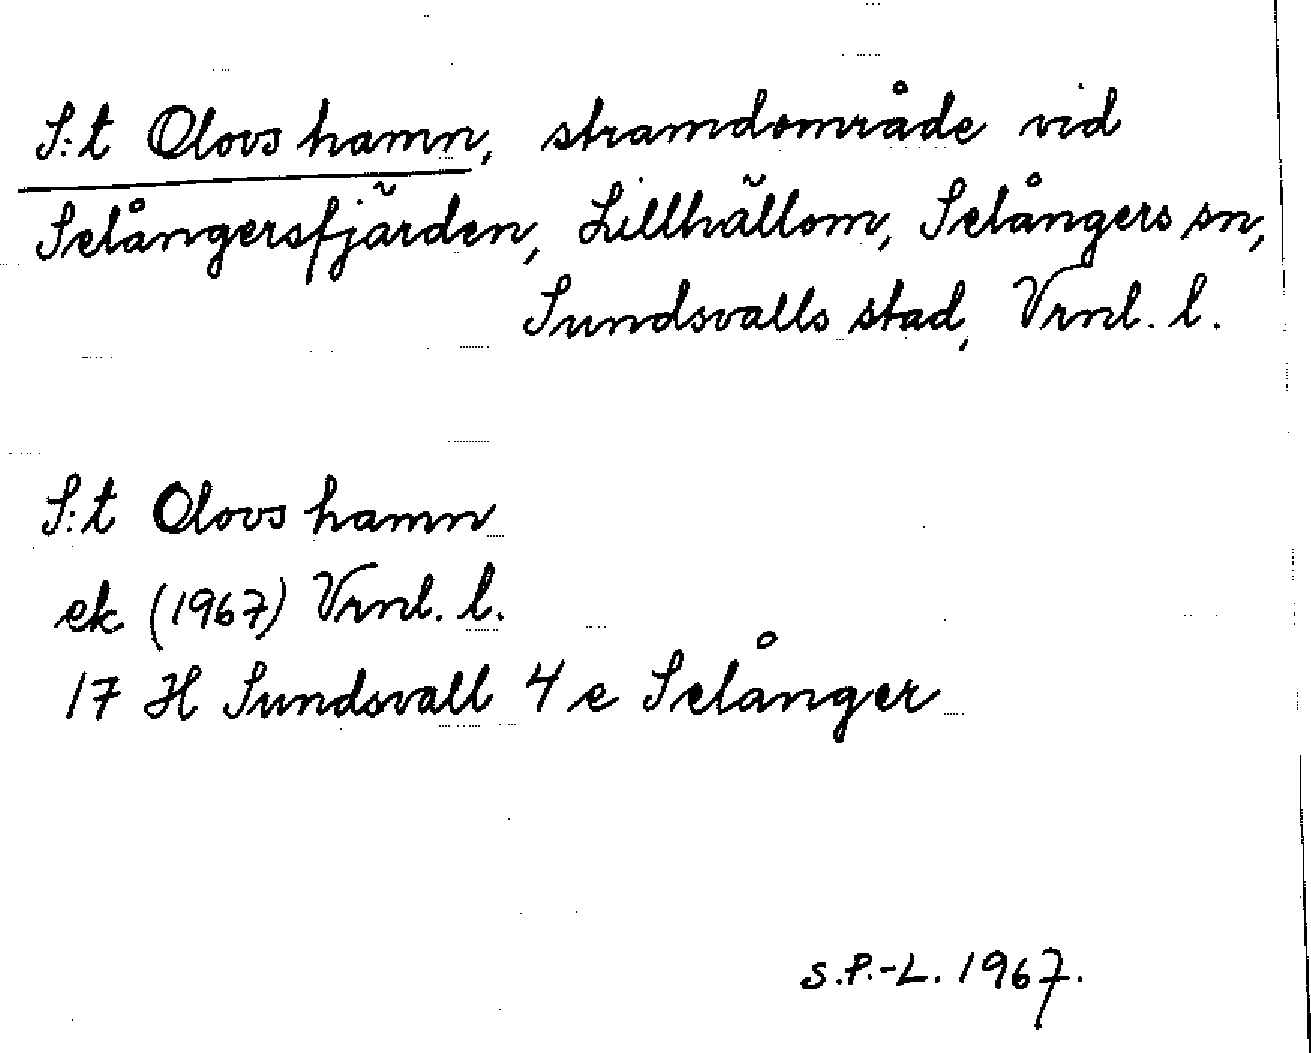 S:t Olovs hamn, strandområde vid
Selångersfjärden, Lillhällom, Selångers sn,
Sundsvalls stad, Vrnl. l.
S:t Olovs hamn
ek (1967) Vrnl. l.
17 H Sundsvall 4 e Selånger
S.P.-L. 1967.